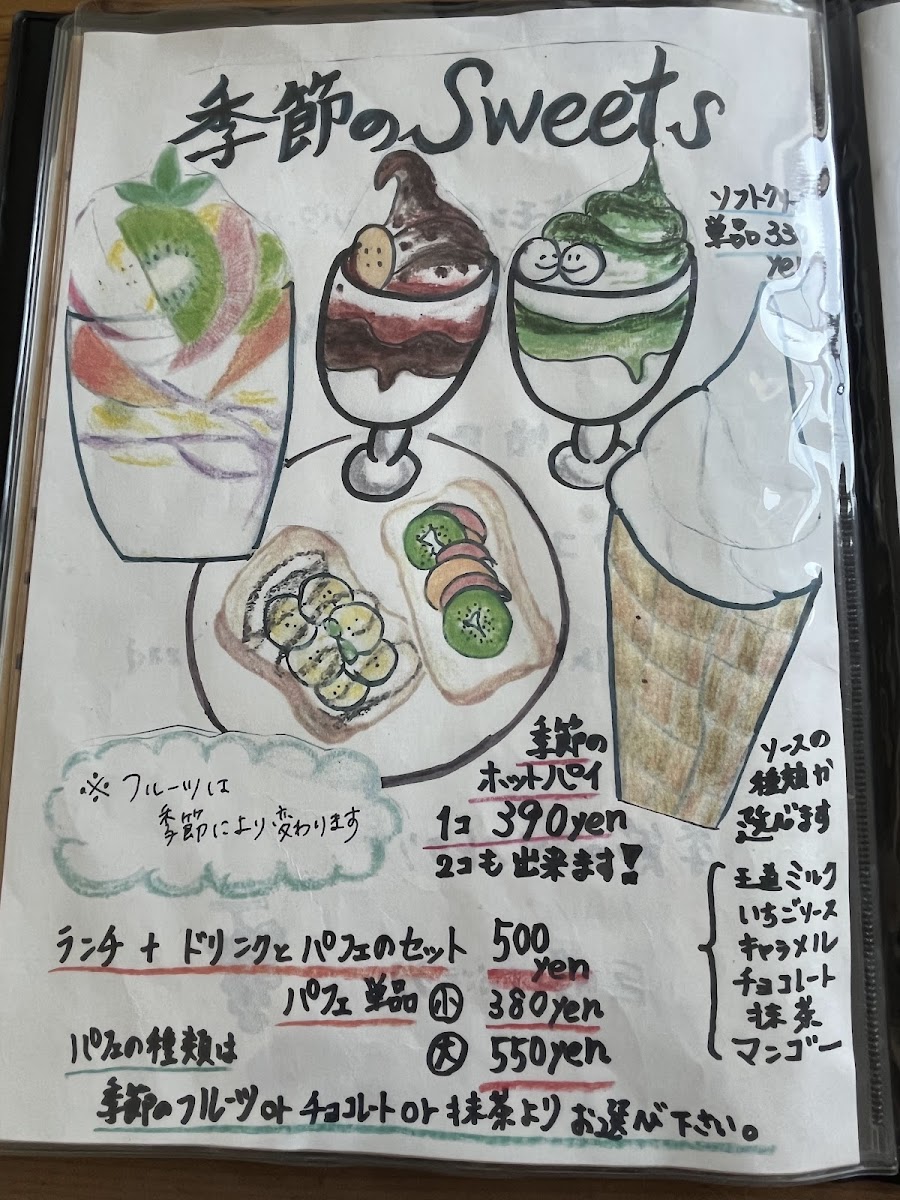 季節のSweets
ソフトクリ
単品 33
yen
季節の
ホットパイ
1コ 390yen
2コも出来ます!
※フルーツは
季節により変わります
ソースの
種類が
選べます
王道ミルク
いちごソース
キャラメル
チョコレート
抹茶
マンゴー
ランチ + ドリンクとパフェのセット 500
yen
パフェ単品 小 380yen
大 550yen
パフェの種類は
季節のフルーツ or チョコレート or 抹茶より お選び下さい。